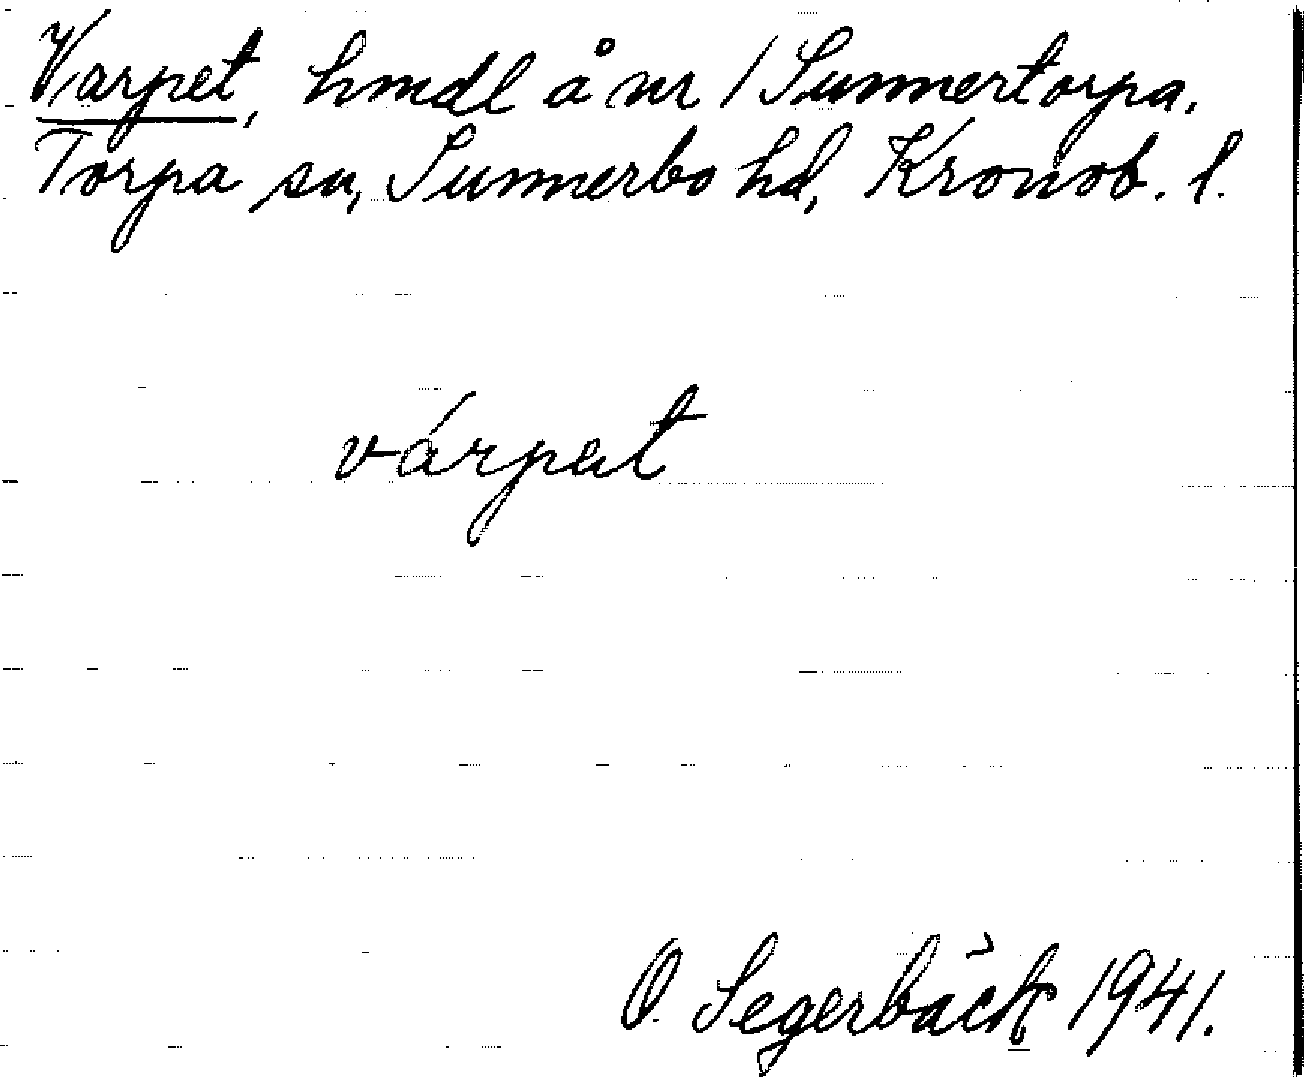 Varpet, hmdl å nr 1 Sunnertorpa.
Torpa sn, Sunnerbo hd, Kronob. l.
várpet
O. Segerbäck 1941.